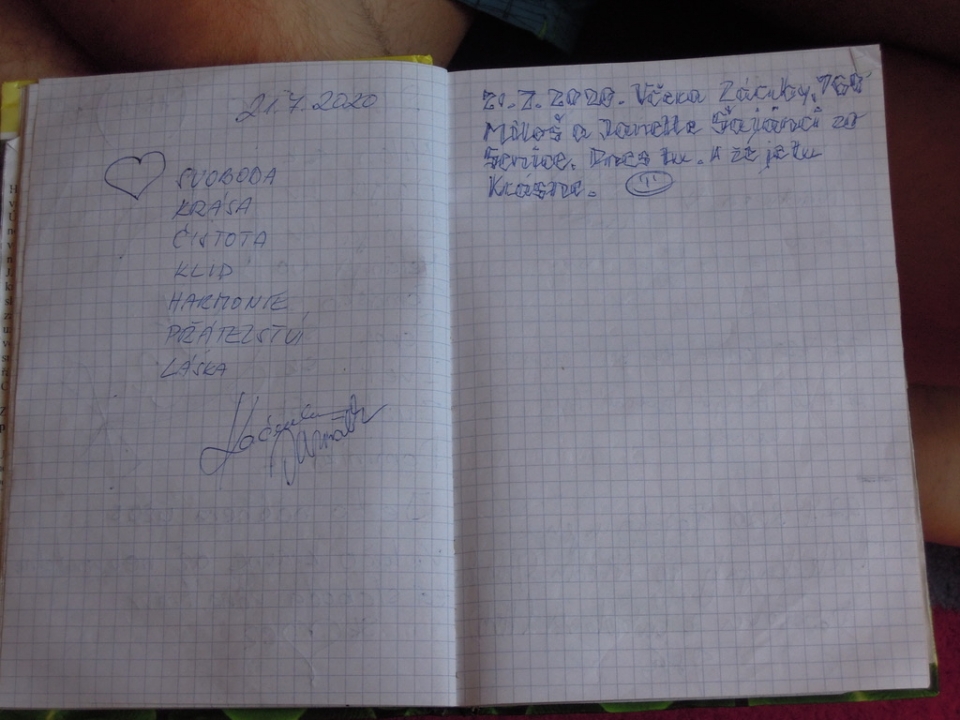 21.7.2020
SVOBODA
KRÁSA
ČISTOTA
KLID
HARMONIE
PŘÁTELSTVÍ
LÁSKA
21.7.2020. Včera Záruby, 768
Miloš a Šajánci zo
Senice. Dnes tu. A že je tu
Krásne.